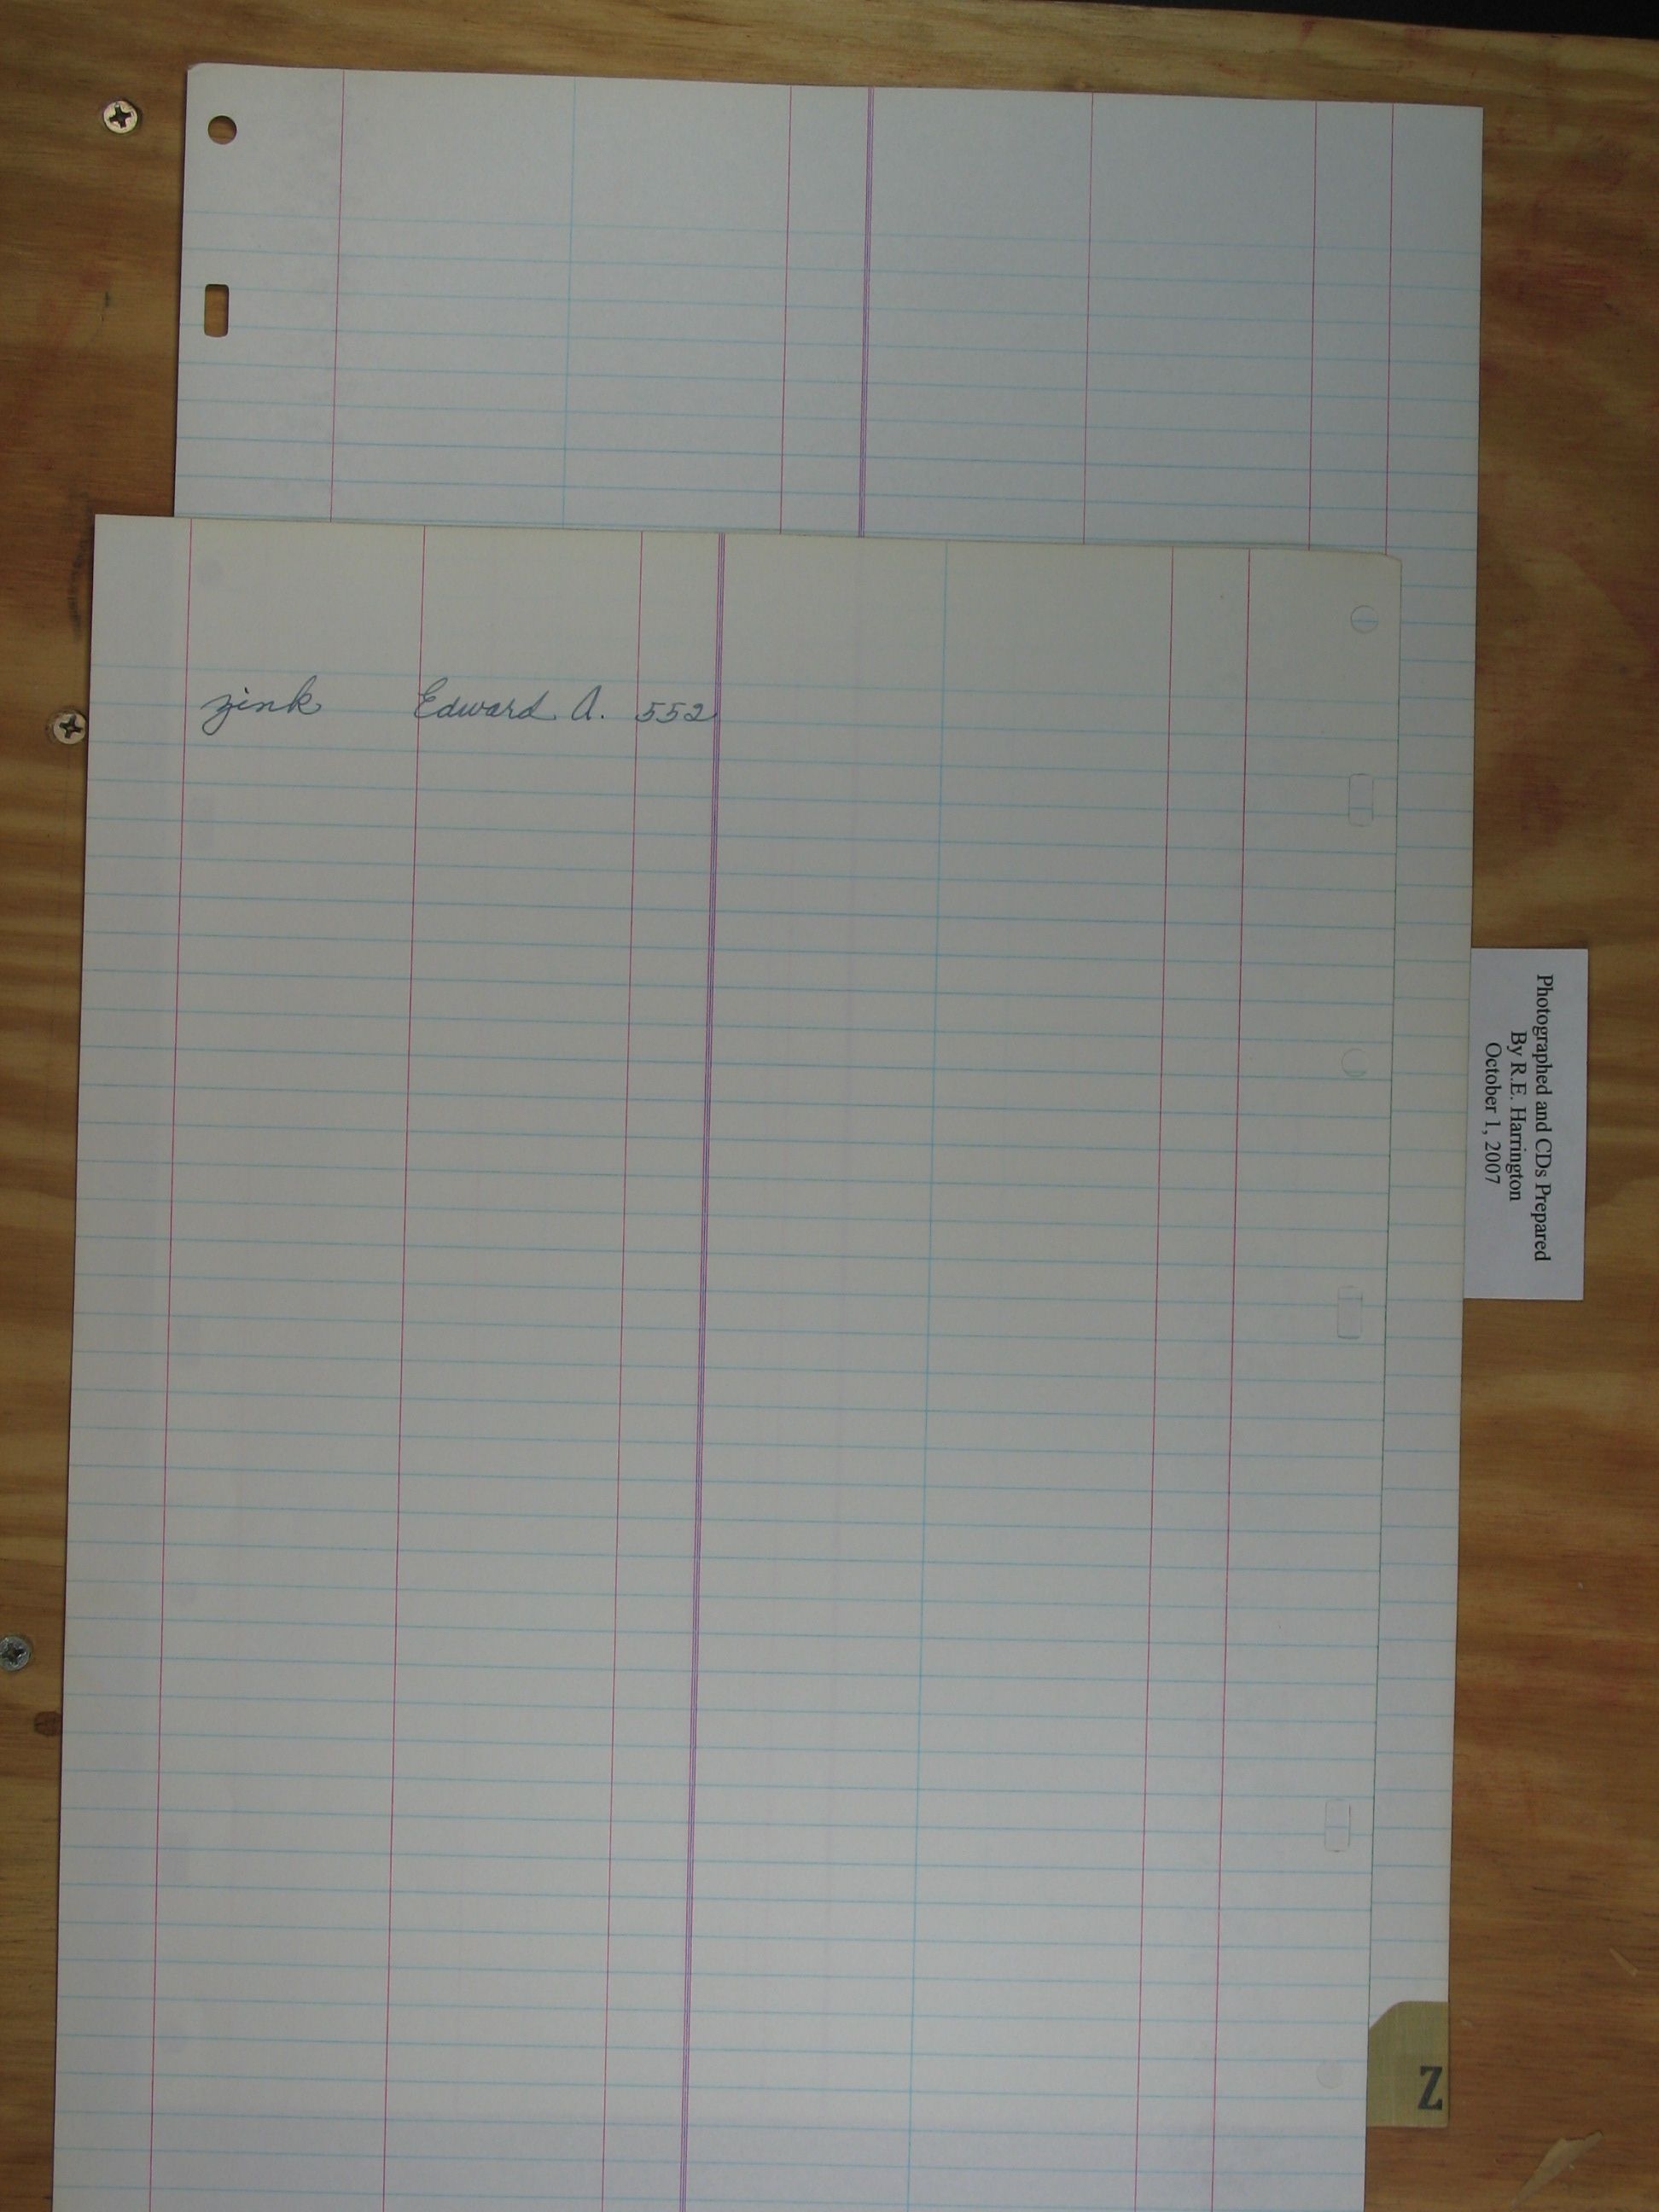 zink Edward A. 552
Photographed and CDs Prepared
By R.E. Harrington
October 1, 2007
Z